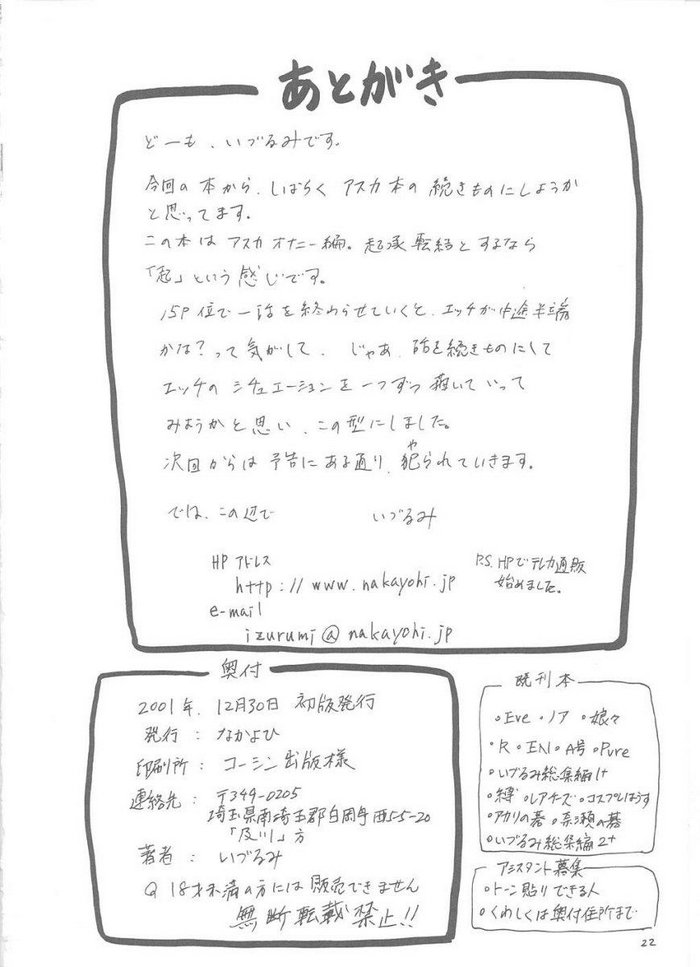 あとがき
どーも、いづるみです。
今回の本から、しばらく アスカ本の続きものにしようか
と思ってます。
この本は アスカオナニー編。起承転結とするなら
「起」という感じです。
15P位で一話を終わらせていくと、エッチが中途半端
かな?って気がして、じゃあ、話を続きものにして
エッチの シチュエーションを一つずつ描いていって
みようかと思い、この型にしました。
次回からは予告にある通り、犯られていきます。
や
では、この辺で いづるみ
HP アドレス
http://www.nakayohi.jp
e-mail
izurumi@nakayohi.jp
P.S. HPでテレカ通販
始めました。
奥付
2001年、12月30日 初版発行
発行:なかよひ
印刷所:コーシン出版様
連絡先:〒349-0205
埼玉県南埼玉郡白岡町西5-5-20
「及川」方
著者:いづるみ
18才未満の方には販売できません
無断転載禁止!!
既刊本
・Eve ・ノア ・娘々
・R ・EN ・A号 ・Pure
・いづるみ総集編1+
・縛 ・レアチーズ ・コスプレはうす
・アカリの碁 ・奈瀬の碁
・いづるみ総集編2+
アシスタント募集
・トーン貼りできる人
・くわしくは奥付住所まで
22